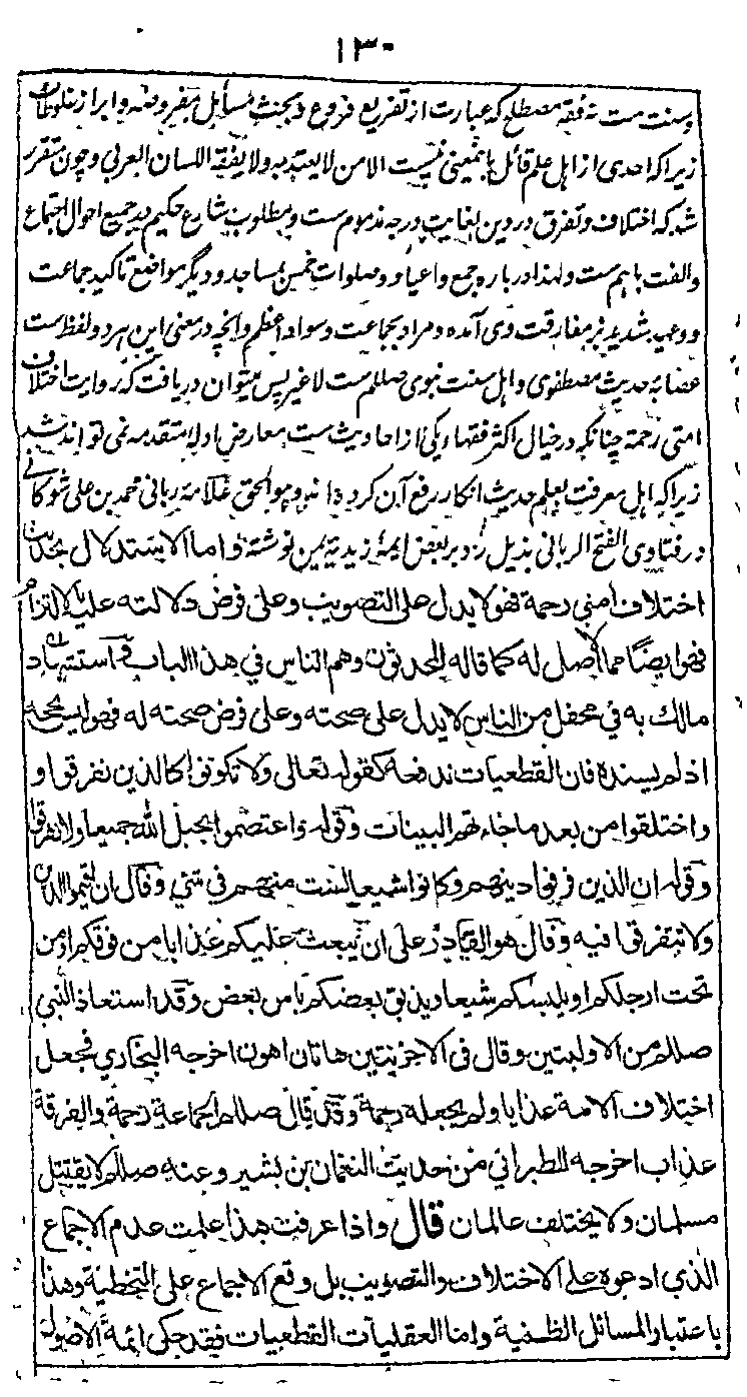 ١٣٠
وسنت ست نه فقه مصطلح که عبارت از تفریع فروع و بحث مسائل مفروضه و ابراز غلوطات
زیرا که احدی از اهل علم قائل باینمعینی نیست الا من لا یعتد به ولا یفقه اللسان العربی و چون متقرر
شد که اختلاف و تفرق در دین بغایت درجه مذموم ست و مطلوب شارع حکیم در جمیع احوال اجتماع
والفت باهم ست ولهذا درباره جمع و اعیاد و صلوات خمس بمساجد و دیگر مواضع تاکید جماعت
و وعید شدید بر مفارقت وی آمده و مراد بجماعت و سواد اعظم و آنچه در معنی این هر دو لفظ ست
عصابهٔ حدیث مصطفوی و اهل سنت نبوی صلعم ست لا غیر پس میتوان دریافت که روایت اختلاف
امتی رحمة چنانکه در خیال اکثر فقها و یکی از احادیث ست معارض ادله متقدمه نمی تواند شد
زیرا که اهل معرفت بعلم حدیث انکار رفع آن کرده اند وهو الحق علامهٔ ربانی محمد بن علی شوکانی
در فتاوی الفتح الربانی بذیل رد بر بعض ایمهٔ زیدیهٔ یمن نوشته واما الاستدلال بحدیث
اختلاف امتی رحمة فهو لا يدل على التصويب وعلى فرض دلالته عليه بالالتزام
فهو ايضًا مما لا اصل له كما قاله المحدثون وهم الناس في هذا الباب واستشهاد
مالك به في محفل من الناس لا يدل على صحته وعلى فرض صحته له فهو ايضا
اذ لم يسنده فان القطعيات تدفعه كقوله تعالى ولا تكونوا كالذين تفرقوا و
واختلفوا من بعد ما جاءتهم البينات وقوله واعتصموا بحبل الله جميعا ولا تفرقوا
وقوله ان الذين فرقوا دينهم وكانوا شيعا لست منهم في شئ وقال ان اقيموا الدين
ولا تتفرقوا فيه وقال هو القادر على ان يبعث عليكم عذابا من فوقكم او من
تحت ارجلكم او يلبسكم شيعا ويذيق بعضكم باس بعض وقد استعاذ النبي
صللم من الاوليتين وقال فى الاخريتين هاتان اهون اخرجه البخاري فجعل
اختلاف الامة عذابا ولم يجعله رحمة وقد قال صللم الجماعة رحمة والفرقة
عذاب اخرجه الطبراني من حديث النعمان بن بشير وعنه صللم لا يقتتل
مسلمان ولا يختلف عالمان قال واذا عرفت هذا علمت عدم الاجماع
الذي ادعوه على الاختلاف والتصويب بل وقع الاجماع على التخطية وهذا
باعتبار المسائل الظنية واما العقليات القطعيات فقد حكى ائمة الاصول